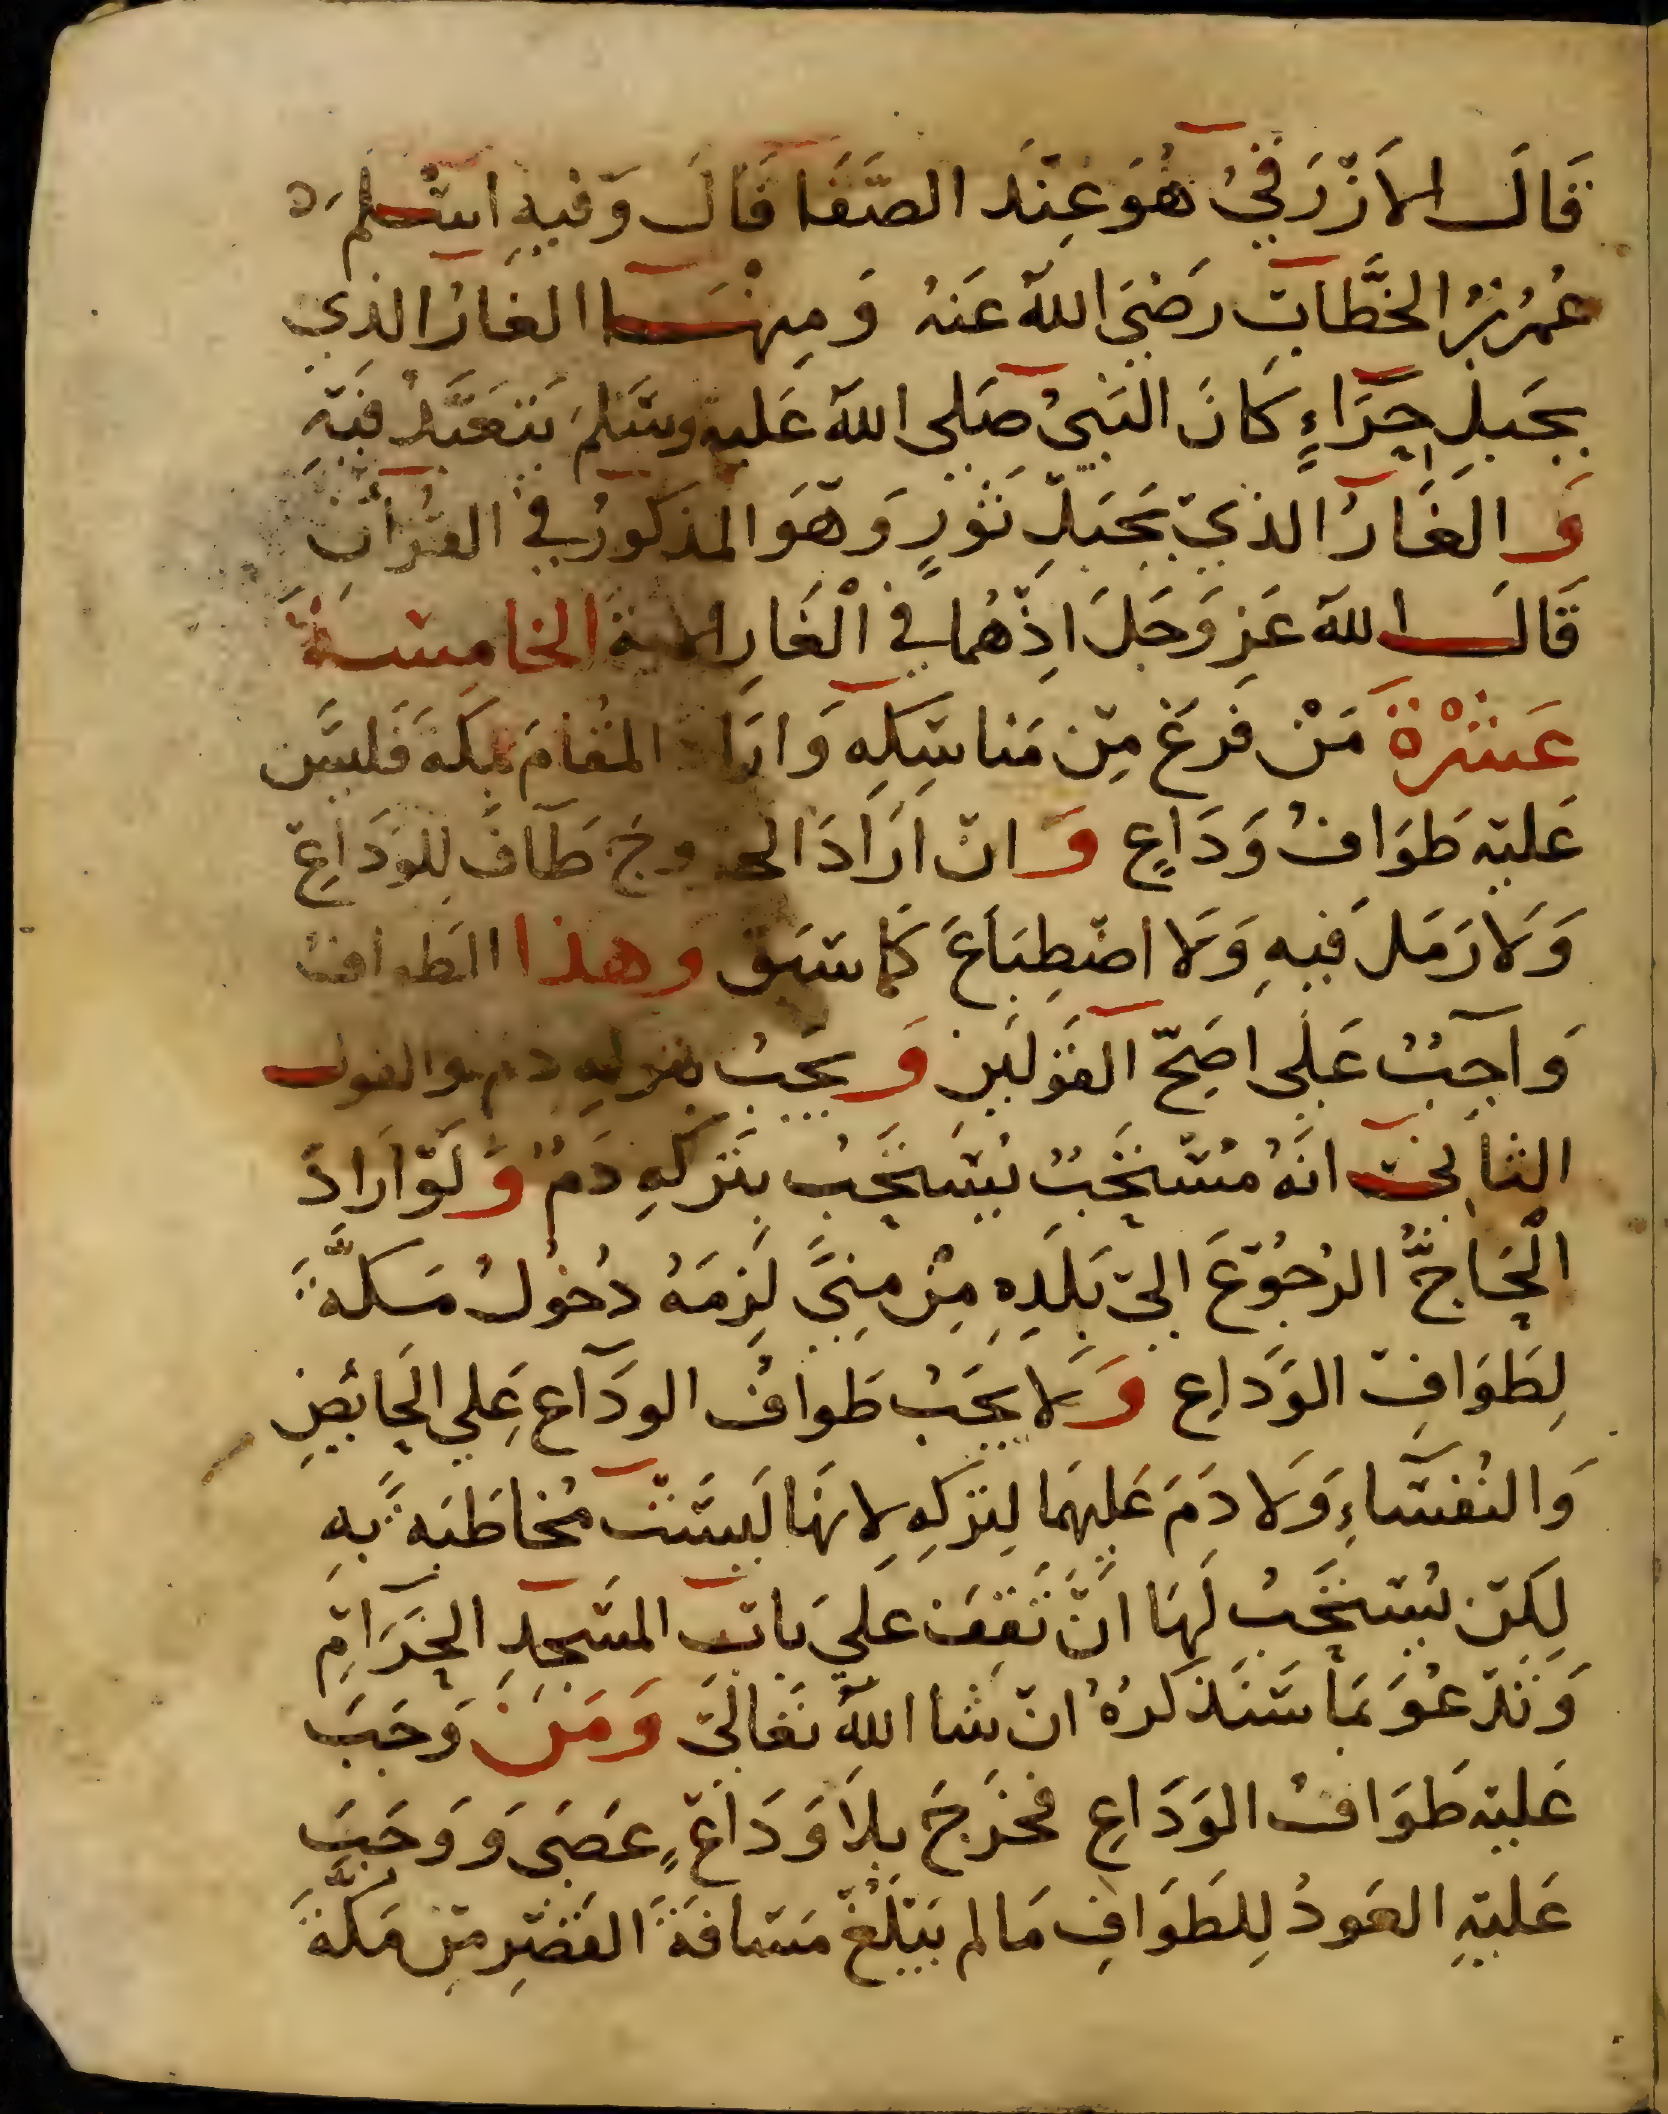 قَالَ الأَزْرَقِيُّ هُوَ عِنْدَ الصَّفَا قَالَ وَفِيهِ اسْلَمَ
عُمَرُ بْنُ الخَطَّابِ رَضِيَ اللهُ عَنهُ وَمِنْهَا الغَارُ الذِي
بِجَبَلِ حِرَاءٍ كَانَ النَّبِيُّ صَلى اللهُ عَليهِ وسَلمَ يَتَعَبَّدُ فِيهِ
وَالغَارُ الذِي بِجَبَلِ ثَوْرٍ وَهُوَ المذكورُ في القرآن
قَالَ اللهُ عَزَّ وَجَلَ اذْ هُمَا فِي الْغَارِ الاية الخامِسَةَ
عَشْرَةَ مَنْ فَرَغَ مِنْ مَناسِكِهِ وَارَادَ المُقامَ بمَكةَ فَليسَ
عَليْهِ طَوَافُ وَدَاعٍ وَانْ ارَادَ الخروجَ طَافَ لِلوَدَاعِ
وَلَا رَمَلَ فِيهِ وَلَا اضْطِبَاعَ كَمَا سَبَقَ وهذا الطَوافُ
وَاجِبٌ عَلَى اصَحِّ القَوْلَينِ وَيَجِبُ بتركِهِ دم والقول
الثاني انَّهُ مُسْتَحَبٌ يُسْتَحَبُ بِتَرْكِهِ دَمٌ وَلَوْ ارَادَ
الْحَاجُّ الرُجُوْعَ الى بَلَدِهِ مِنْ مِنىً لَزِمَهُ دُخولُ مَكَّةَ
لِطَوَافِ الوَدَاعِ وَلا يَجبُ طَوافُ الودَاع عَلي الحَائِضِ
وَالنُفَسَاءِ وَلَا دَمَ عَليهِمَا لِتَرْكِهِ لِانهَا لَيسَتْ مُخاطَبَةً بِهِ
لكِنْ يُسْتَحَبُ لَهَا انْ تَقِفَ عليَ بابِ المسْجِدِ الحَرَامِ
وَتَدْعُوَ بمَا سَنَذكُرُهُ انْ شا اللهُ تَعَالَى وَمَنْ وَجَبَ
عَليهِ طَوَافُ الوَدَاعِ فخَرَجَ بِلَا وَدَاعٍ عَصَى وَوَجَبَ
عَليْهِ العَودُ لِلطَوَافِ مَا لم يَبْلُغْ مَسَافَةَ القَصْرِ مِنْ مَكَّةَ